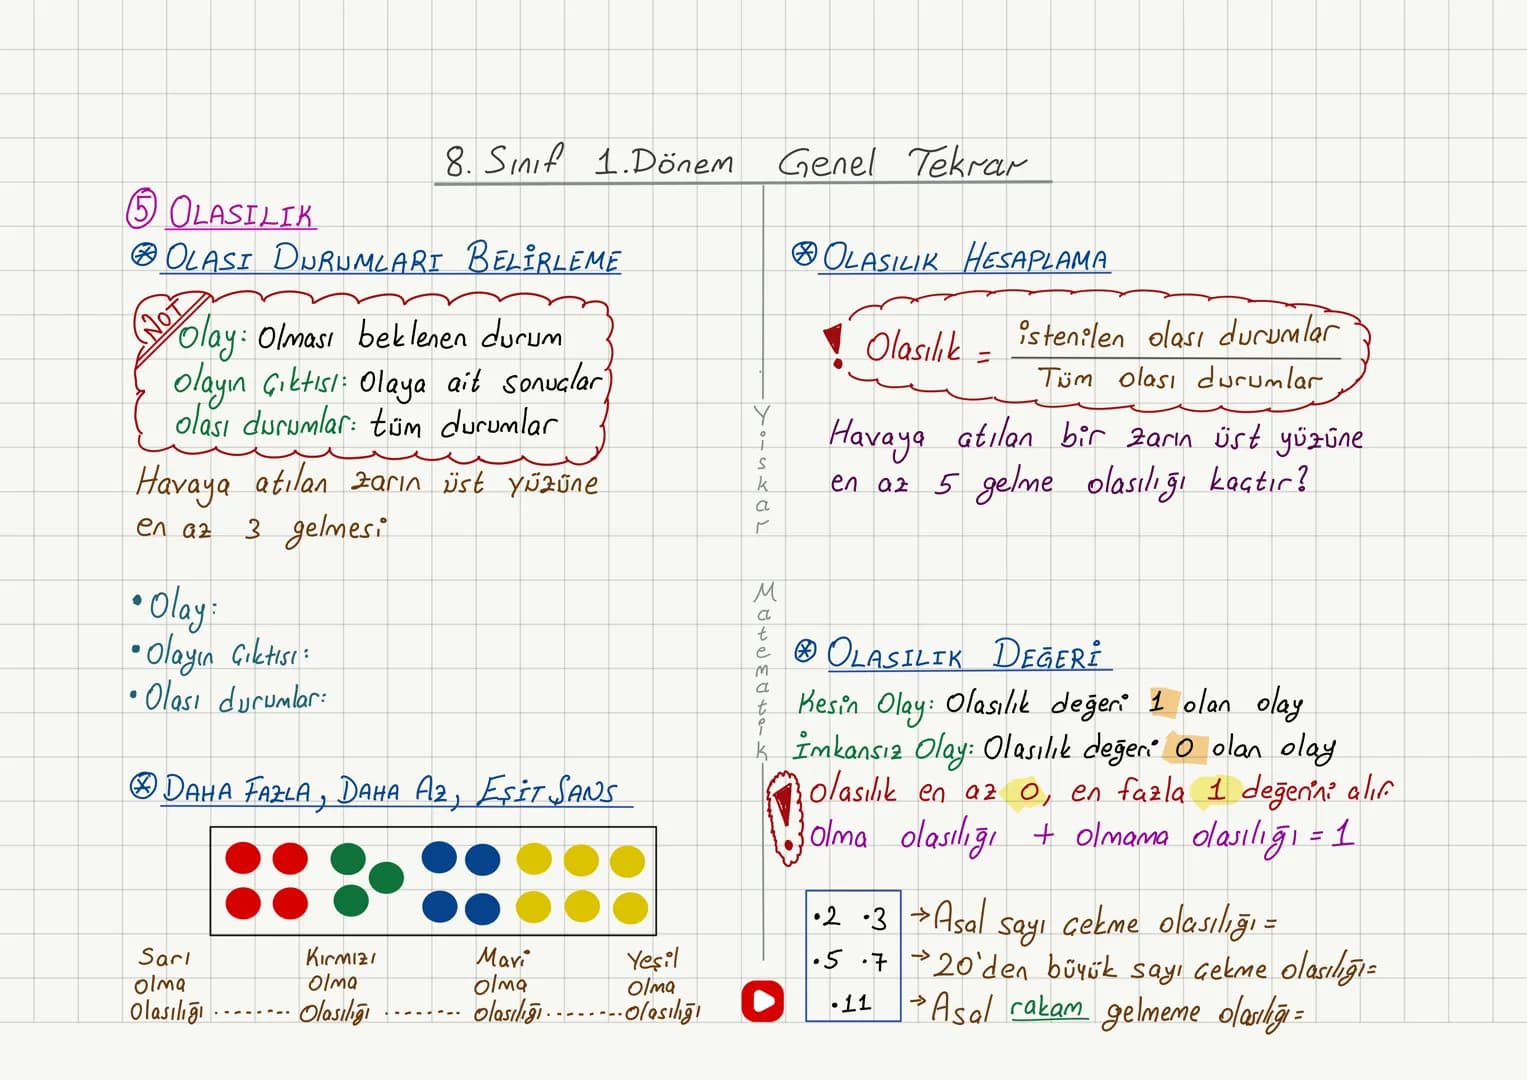 8. Sınıf 1.Dönem Genel Tekrar
5 OLASILIK
OLASI DURUMLARI BELİRLEME
NOT
Olay: Olması beklenen durum
olayın çıktısı: Olaya ait sonuçlar
olası durumlar: tüm durumlar
Havaya atılan zarın üst yüzüne
en az 3 gelmesi
• Olay:
• Olayın Çıktısı:
• Olası durumlar:
DAHA FAZLA, DAHA AZ, EŞİT ŞANS
Sarı olma Olasılığı -------- Kırmızı olma Olasılığı -------- Mavi olma olasılığı -------- Yeşil olma olasılığı
Yiskar Matematik
OLASILIK HESAPLAMA
! Olasılık = istenilen olası durumlar
Tüm olası durumlar
Havaya atılan bir zarın üst yüzüne
en az 5 gelme olasılığı kaçtır?
OLASILIK DEĞERİ
Kesin Olay: Olasılık değeri 1 olan olay
İmkansız Olay: Olasılık değeri 0 olan olay
! olasılık en az 0, en fazla 1 değerini alır
olma olasılığı + olmama olasılığı = 1
•2 •3
•5 •7
•11
→ Asal sayı çekme olasılığı =
→ 20'den büyük sayı çekme olasılığı=
→ Asal rakam gelmeme olasılığı =